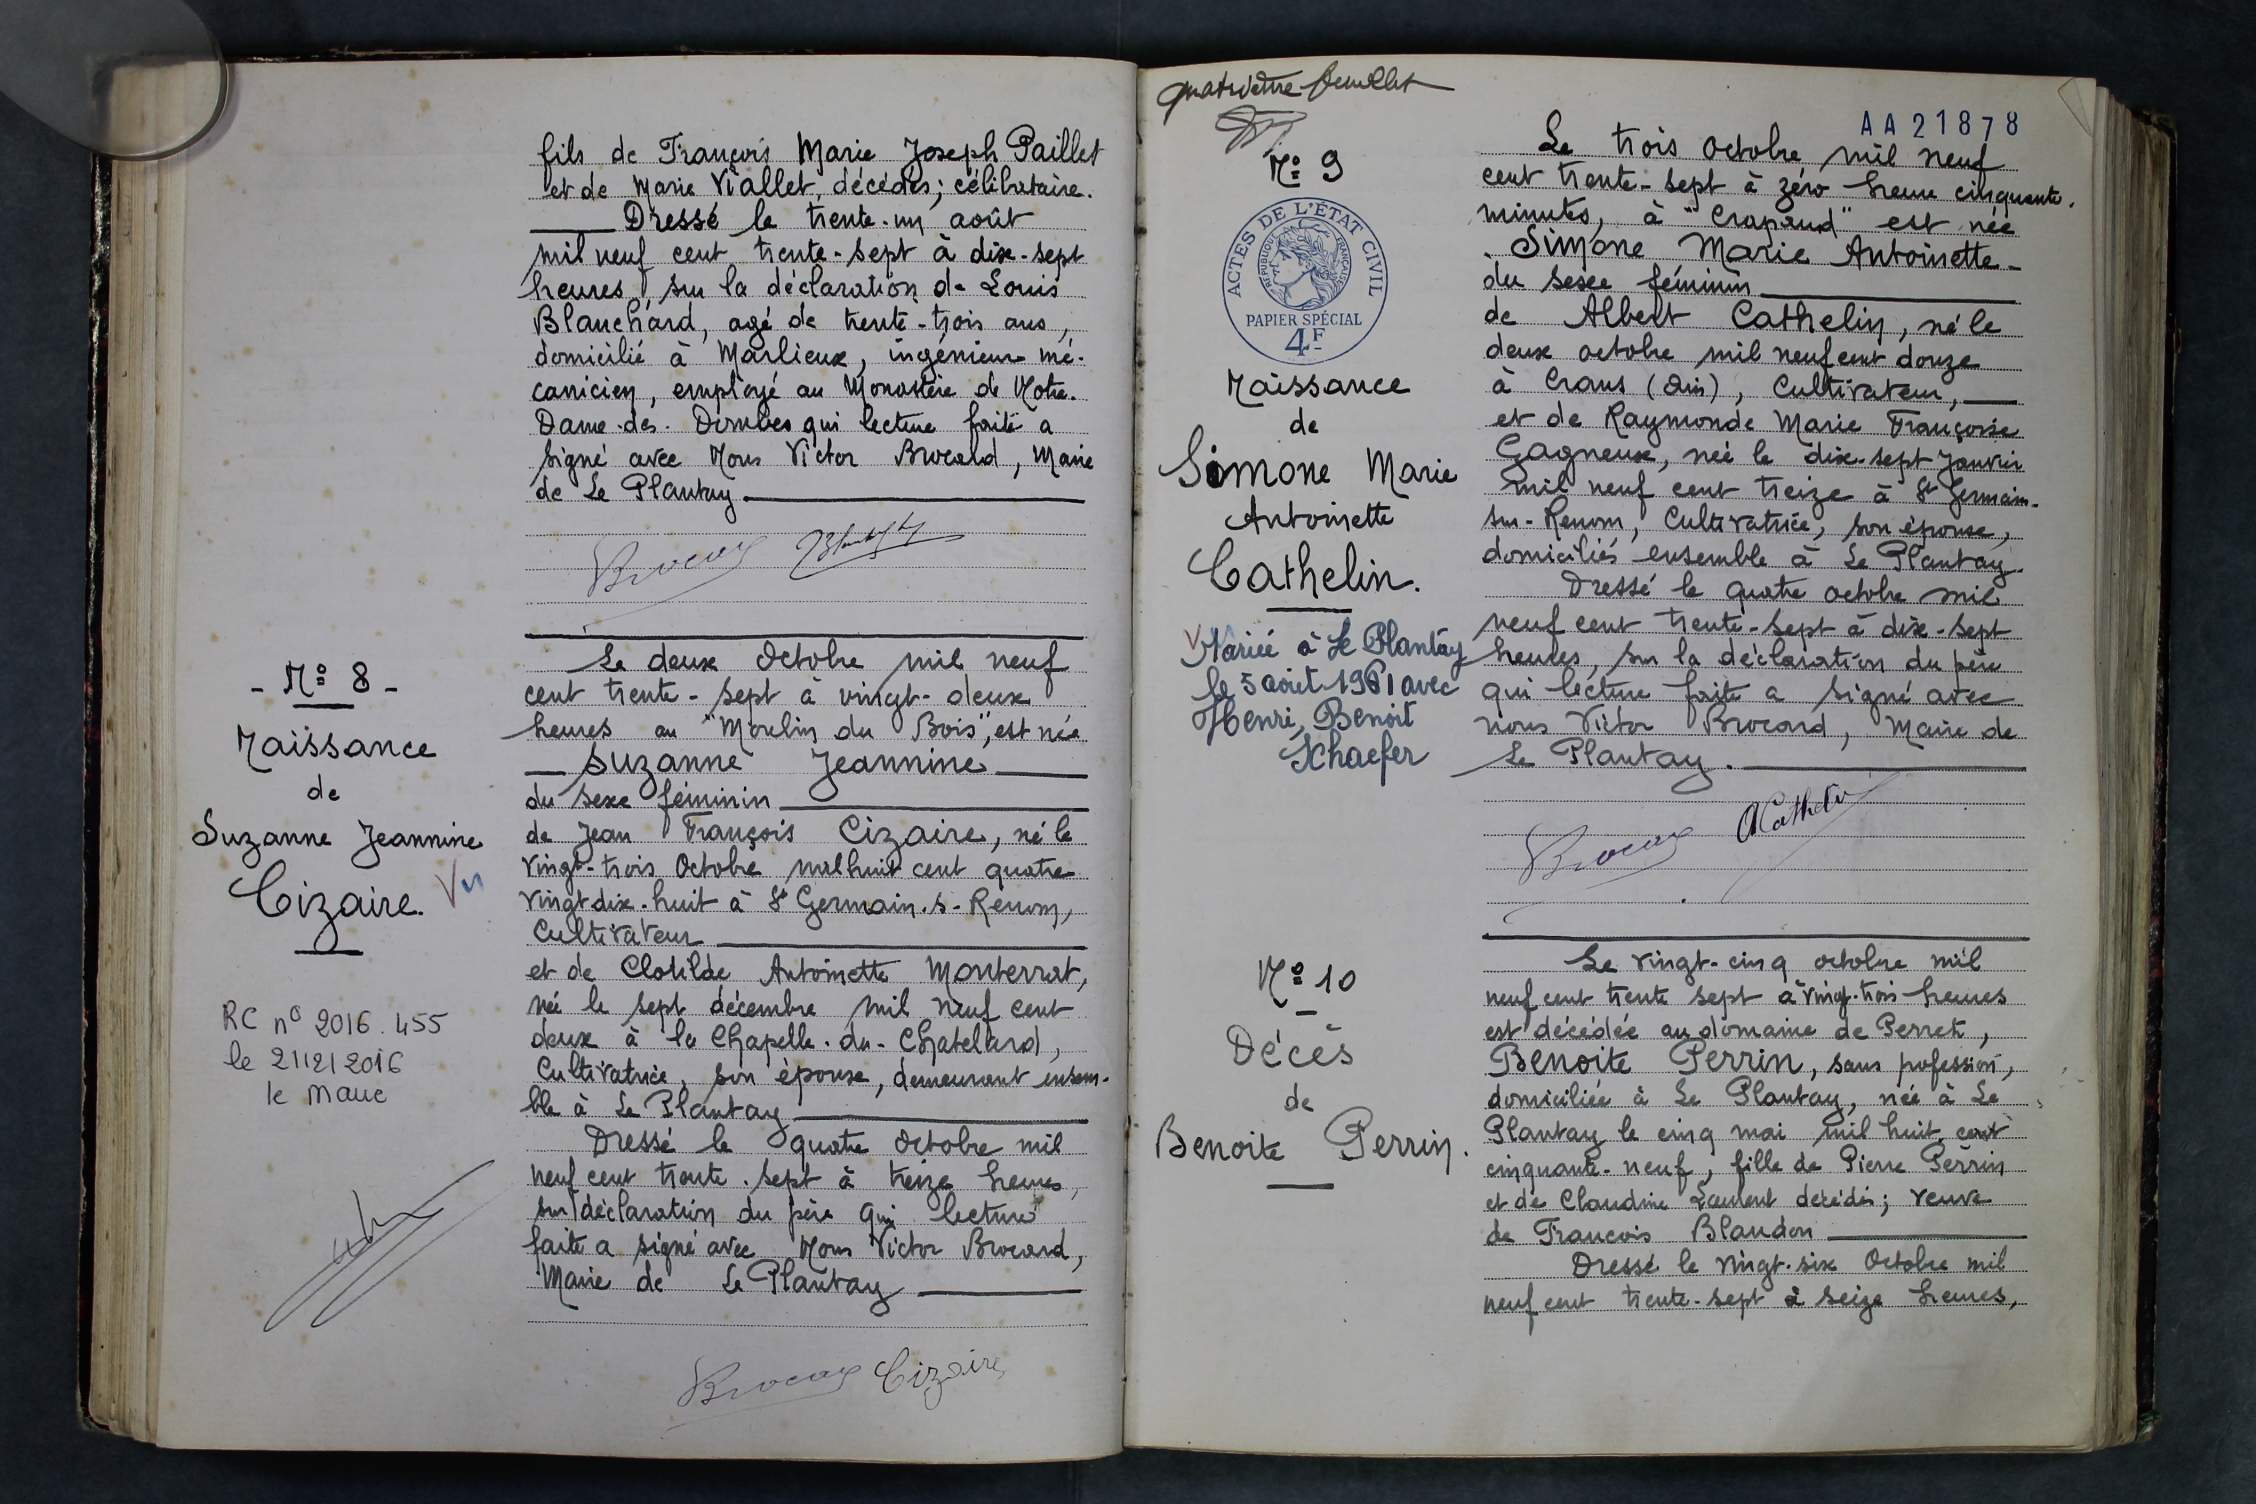 fils de François Marie Joseph Paillet
et de Marie Viallet, décédés; célibataire.
Dressé le trente-un août
mil neuf cent trente-sept à dix-sept
heures, sur la déclaration de Louis
Blanchard, agé de trente-trois ans,
domicilié à Marlieux, ingénieur mé-
canicien, employé au Monastère de Notre-
Dame-des-Dombes qui lecture faite a
signé avec Nous Victor Brocard, Maire
de Le Plantay
Brocard
- Nº 8 -
Naissance
de
Suzanne Jeannine
Cizaire.
Vu
RC nº 2016.455
le 21/2/2016
le Maire
Le deux Octobre mil neuf
cent trente-sept à vingt-deux
heures au "Moulin du Bois", est née
Suzanne Jeannine
du sexe féminin
de Jean François Cizaire, né le
vingt-trois Octobre mil huit cent quatre
vingt dix-huit à St Germain-s-Renom,
Cultivateur
et de Clotilde Antoinette Monterrat,
née le sept décembre mil neuf cent
deux à la Chapelle-du-Chatelard,
Cultivatrice, son épouse, demeurant ensem-
ble à Le Plantay
Dressé le quatre Octobre mil
neuf cent trente-sept à treize heures,
sur déclaration du père qui lecture
faite a signé avec Nous Victor Brocard,
Maire de Le Plantay
Brocard Cizaire
quatrième feuillet
AA21878
Nº 9
ACTES DE L'ÉTAT CIVIL
RÉPUBLIQUE FRANÇAISE
PAPIER SPÉCIAL
4F
Naissance
de
Simone Marie
Antoinette
Cathelin.
V
Mariée à Le Plantay
le 5 août 1961 avec
Henri, Benoit
Schaefer
Le trois octobre mil neuf
cent trente-sept à zéro heure cinquante
minutes, à "Crapaud" est née
Simone Marie Antoinette
du sexe féminin
de Albert Cathelin, né le
deux octobre mil neuf cent douze
à Crans (Ain), Cultivateur,
et de Raymonde Marie Françoise
Gagneux, née le dix-sept Janvier
mil neuf cent treize à St Germain-
sur-Renom, Cultivatrice, son épouse,
domiciliés ensemble à Le Plantay.
Dressé le quatre octobre mil
neuf cent trente-sept à dix-sept
heures, sur la déclaration du père
qui lecture faite a signé avec
nous Victor Brocard, Maire de
Le Plantay.
Brocard ACathelin
Nº 10
Décès
de
Benoite Perrin.
Le vingt-cinq octobre mil
neuf cent trente sept à vingt-trois heures
est décédée au domaine de Perret,
Benoite Perrin, sans profession,
domiciliée à Le Plantay, née à Le
Plantay le cinq mai mil huit cent
cinquante-neuf, fille de Pierre Perrin
et de Claudine Laurent décédés; veuve
de François Blandon
Dressé le vingt-six Octobre mil
neuf cent trente-sept à seize heures,